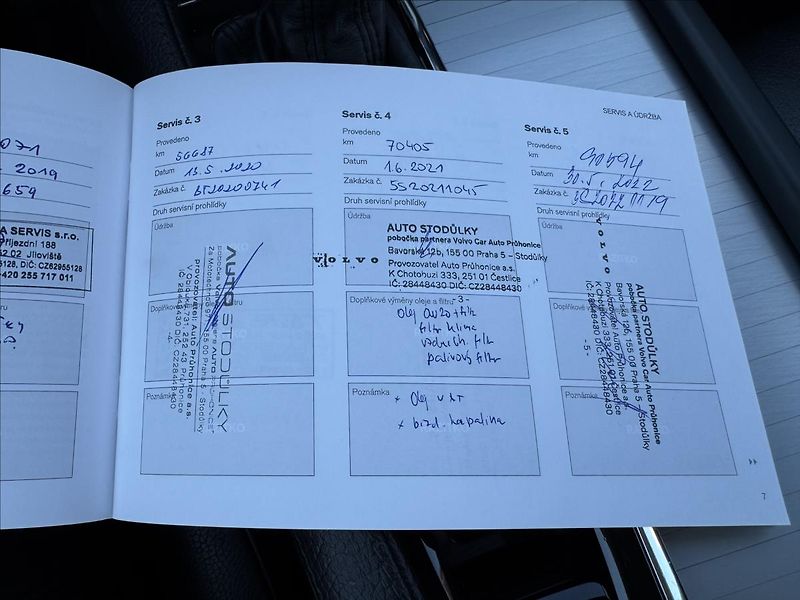 SERVIS A ÚDRŽBA
071
2019
659
A SERVIS s.r.o.
Příjezdní 188
252 02 Jíloviště
DIČ: CZ62955128
+420 255 717 011
Servis č. 3
Provedeno
km 56687
Datum 13.5.2020
Zakázka č.
Druh servisní prohlídky
Údržba
Doplňkové výměny oleje a filtrů
Poznámka
AUTO STODŮLKY
155 00 Praha 5 - Stodůlky
Provozovatel: Auto Průhonice a.s.
252 43 Průhonice
IČ: 28448430 DIČ: CZ28448430
-4-
Servis č. 4
Provedeno
km 70405
Datum 1.6.2021
Zakázka č. 5S20211045
Druh servisní prohlídky
Údržba
VOLVO
AUTO STODŮLKY
pobočka partnera Volvo Car Auto Průhonice
Bavorská 12b, 155 00 Praha 5 – Stodůlky
Provozovatel Auto Průhonice a.s.
K Chotobuzi 333, 251 01 Čestlice
IČ: 28448430 DIČ: CZ28448430
-3-
Doplňkové výměny oleje a filtrů
Olej 0w20 + filtr
filtr klima
vzduch. filtr
palivový filtr
Poznámka
× Olej v
× brzd. kapalina
Servis č. 5
Provedeno
km 90894
Datum 30.5.2022
Zakázka č.
Druh servisní prohlídky
Údržba
Doplňkové
Poznámka
VOLVO
AUTO STODŮLKY
pobočka partnera Volvo Car Auto Průhonice
Bavorská 12b, 155 00 Praha 5 - Stodůlky
Provozovatel Auto Průhonice a.s.
K Chotobuzi 333, 251 01 Čestlice
IČ: 28448430 DIČ: CZ28448430
-5-
7